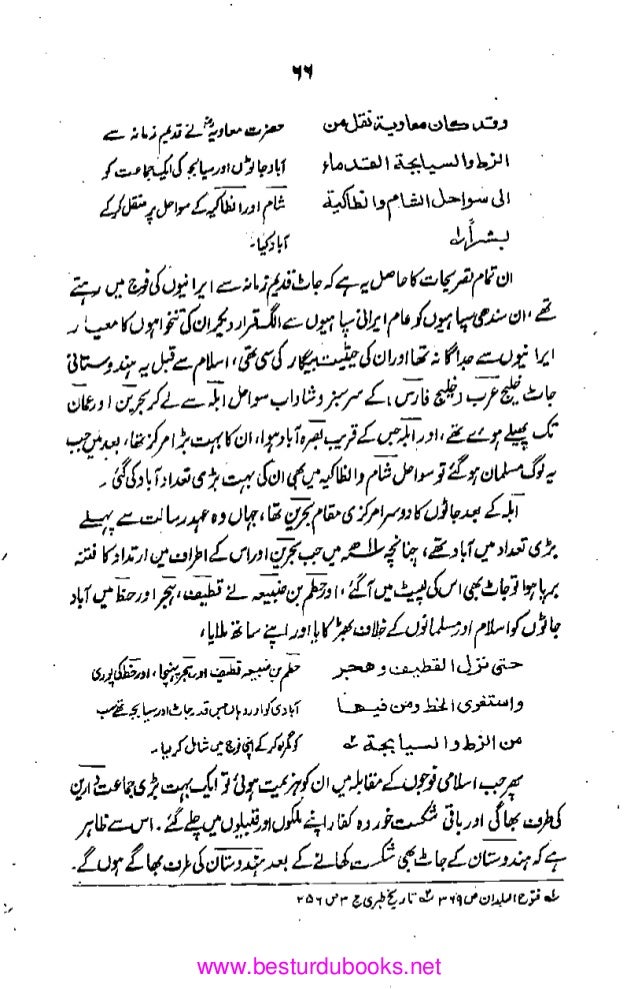 ۶۶
وقد كان معاوية نقل من حضرت معاویہؓ نے قدیم زمانہ سے
الزط والسيابجة القدماء آباد جاٹوں اور سیابجہ کی ایک جماعت کو
الى سواحل الشام وانطاكية شام اور انطاکیہ کے سواحل پر منتقل کرکے
بشراً لہ آباد کیا۔
ان تمام تصریحات کا حاصل یہ ہے کہ جاٹ قدیم زمانہ سے ایرانیوں کی فوج میں رہتے
تھے، ان سندھی سپاہیوں کو عام ایرانی سپاہیوں سے الگ قرار دیکر ان کی تنخواہوں کا معیار
ایرانیوں سے جداگانہ تھا اور ان کی حیثیت بیگار کی سی تھی، اسلام سے قبل یہ ہندوستانی
جاٹ خلیج عرب (خلیج فارس) کے سرسبز و شاداب سواحل ابلہ سے لے کر بحرین اور عمان
تک پھیلے ہوے تھے، اور ابلہ جس کے قریب بصرہ آباد ہوا، ان کا بہت بڑا مرکز تھا، بعد میں جب
یہ لوگ مسلمان ہو گئے تو سواحل شام و انطاکیہ میں بھی ان کی بہت بڑی تعداد آباد کی گئی۔
ابلہ کے بعد جاٹوں کا دوسرا مرکزی مقام بحرین تھا، جہاں وہ عہد رسالت سے پہلے
بڑی تعداد میں آباد تھے، چنانچہ میں جب بحرین اور اس کے اطراف میں ارتداد کا فتنہ
برپا ہوا تو جاٹ بھی اس کی لپیٹ میں آگئے، اور حطم بن ضبیعہ نے قطیف، ہجر اور خط میں آباد
جاٹوں کو اسلام اور مسلمانوں کے خلاف بھڑکایا اور اپنے ساتھ ملایا،
حتى نزل القطيف وهجر حطم بن ضبیعہ قطیف اور ہجر پہنچا، اور خط کی پوری
واستغوى الخط ومن فيها آبادی کو اور وہاں جس قدر جاٹ اور سیابجہ تھے سب
من الزط والسيابجة ۲ کو گمراہ کرکے اپنی فوج میں شامل کر لیا۔
پھر جب اسلامی فوجوں کے مقابلہ میں ان کو ہزیمت ہوئی تو ایک بہت بڑی جماعت دارین
کی طرف بھاگی اور باقی شکست خوردہ کفار اپنے ملکوں اور قبیلوں میں چلے گئے۔ اس سے ظاہر
ہے کہ ہندوستان کے جاٹ بھی شکست کھانے کے بعد ہندوستان کی طرف بھاگے ہوں گے۔
لہ فتوح البلدان ص ۳۶۹ ۲ تاریخ طبری ج ۳ ص ۲۵۶
www.besturdubooks.net